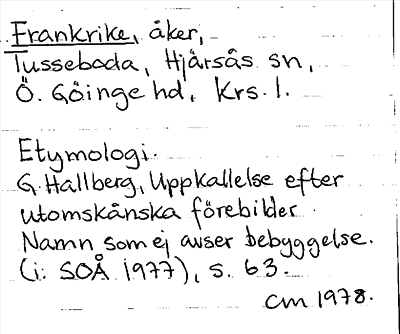 Frankrike, åker,
Tusseboda, Hjärsås sn,
Ö. Göinge hd, Krs. l.
Etymologi.
G. Hallberg, Uppkallelse efter
utomskånska förebilder.
Namn som ej avser bebyggelse.
(i: SOÅ 1977), s. 63.
CM 1978.